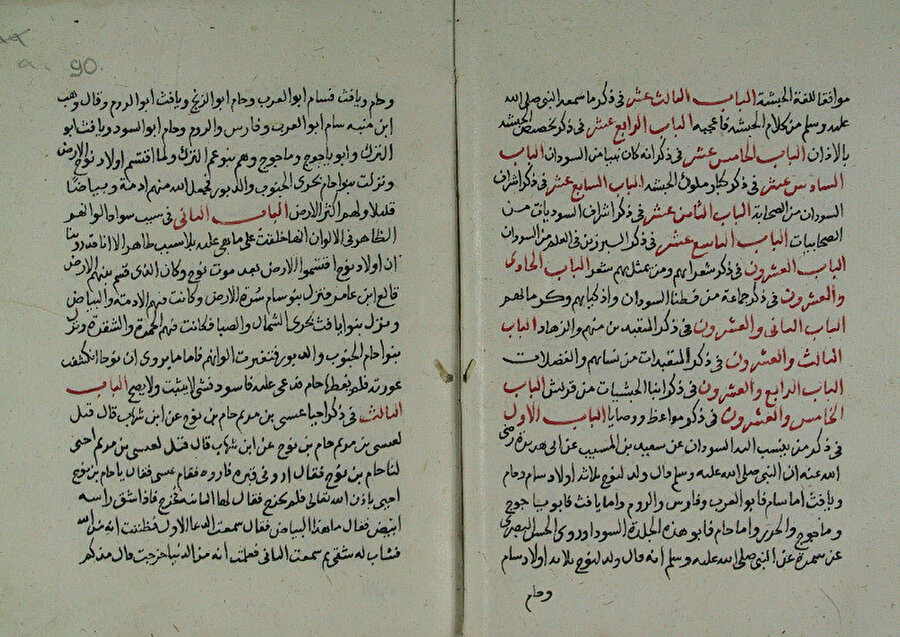 موافقا للغة الحبشة الباب الثالث عشر في ذكر ما سمعه النبي صلى الله
عليه وسلم من كلام الحبشة فاعجبه الباب الرابع عشر في ذكر تخصيص الحبشة
بالاذان الباب الخامس عشر في ذكر انه كان نبيا من السودان الباب
السادس عشر في ذكر كبار ملوك الحبشة الباب السابع عشر في ذكر اشراف
السودان من الصحابة الباب الثامن عشر في ذكر اشراف السوديات من
الصحابيات الباب التاسع عشر في ذكر المبرزين في العلم من السودان
الباب العشرون في ذكر شعرايهم ومن تمثل بهم بشعر الباب الحادي
والعشرون في ذكر جماعة من فطنا السودان واذكيايهم وكرمايهم
الباب الثاني والعشرون في ذكر المتعبدين منهم والزهاد الباب
الثالث والعشرون في ذكر المتعبدات من نسايهم والفضلات
الباب الرابع والعشرون في ذكر ابنا الحبشيات من قريش الباب
الخامس والعشرون في ذكر مواعظ ووصايا الباب الاول
في ذكر من ينسب اليه السودان عن سعيد بن المسيب عن ابي هريرة رضي
الله عنه ان النبي صلى الله عليه وسلم قال ولد لنوح ثلاثة اولاد سام وحام
ويافث اما سام فابو العرب وفارس والروم واما يافث فابو ياجوج
وماجوج والخزر واما حام فابو هذه الجلدة السودا وروى الحسن البصري
عن سمرة عن النبي صلى الله عليه وسلم انه قال ولد لنوح ثلاثة اولاد سام
وحام
90
وحام ويافث فسام ابو العرب وحام ابو الزنج ويافث ابو الروم وقال وهب
ابن منبه سام ابو العرب وفارس والروم وحام ابو السود ويافث ابو
الترك وابو ياجوج وماجوج وهم بنو عم الترك ولما اقتسم اولاد نوح الارض
ونزلت بنو حام مجرى الجنوب والدبور فجعل الله منهم ادمة وبياضا
قليلا ولهم اكثر الارض الباب الثاني في سبب سواد الوانهم
الظاهر في الالوان انها خلقت على ما هي عليه بلا سبب ظاهر الا انا قد روينا
ان اولاد نوح اقتسموا الارض بعد موت نوح وكان الذي قسم بينهم الارض
فالغ ابن عابر فنزل بنو سام سرة الارض وكانت فيهم الادمة والبياض
ونزل بنو يافث مجرى الشمال والصبا فكانت فيهم الحمرة والشقرة ونزل
بنو حام الجنوب والدبور فتغيرت الوانهم فاما ما يروى ان نوحا انكشفت
عورته فلم يغطها حام فدعى عليه فاسود فشي لا يثبت ولا يصح الباب
الثالث في ذكر احيا عيسى بن مريم حام بن نوح عن ابن شهاب قال قيل
لعيسى بن مريم حام بن نوح عن ابن شهاب قال قيل لعيسى بن مريم احيي
لنا حام بن نوح فقال اروني قبره فاروه فقام عيسى فقال يا حام بن نوح
احيى باذن الله تعالى فلم يخرج فقال لها الثانية فخرج فاذا شق راسه
ابيض فقال ما هذا البياض فقال سمعت الدعا الاول فظننت انه من الله
فشاب له شقي ثم سمعت الثاني فعلمت انه من الدنيا فخرجت قال منذ كم